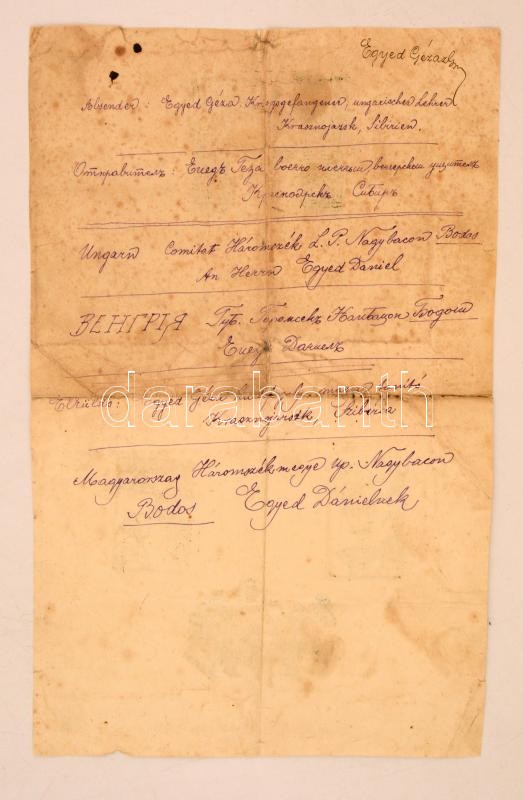 Egyed Géza
Absender: Egyed Géza Kriegsgefangener, ungarischer Lehrer
Krasznojarsk, Sibirien.
Отправитель: Егедъ Геза военно пленный, венгерский учитель
Красноярскъ Сибирь
Ungarn Comitat Háromszék L. P. Nagybacon Bodos
An Herrn Egyed Daniel
ВЕНГРІЯ Губ. Геромсек Бодош
Егед Даниел
Elküldő: Egyed Géza magyar tanító
Krasznojarszk, Szibéria
Magyarország Háromszékmegye up. Nagybacon
Bodos Egyed Dánielnek
darabanth